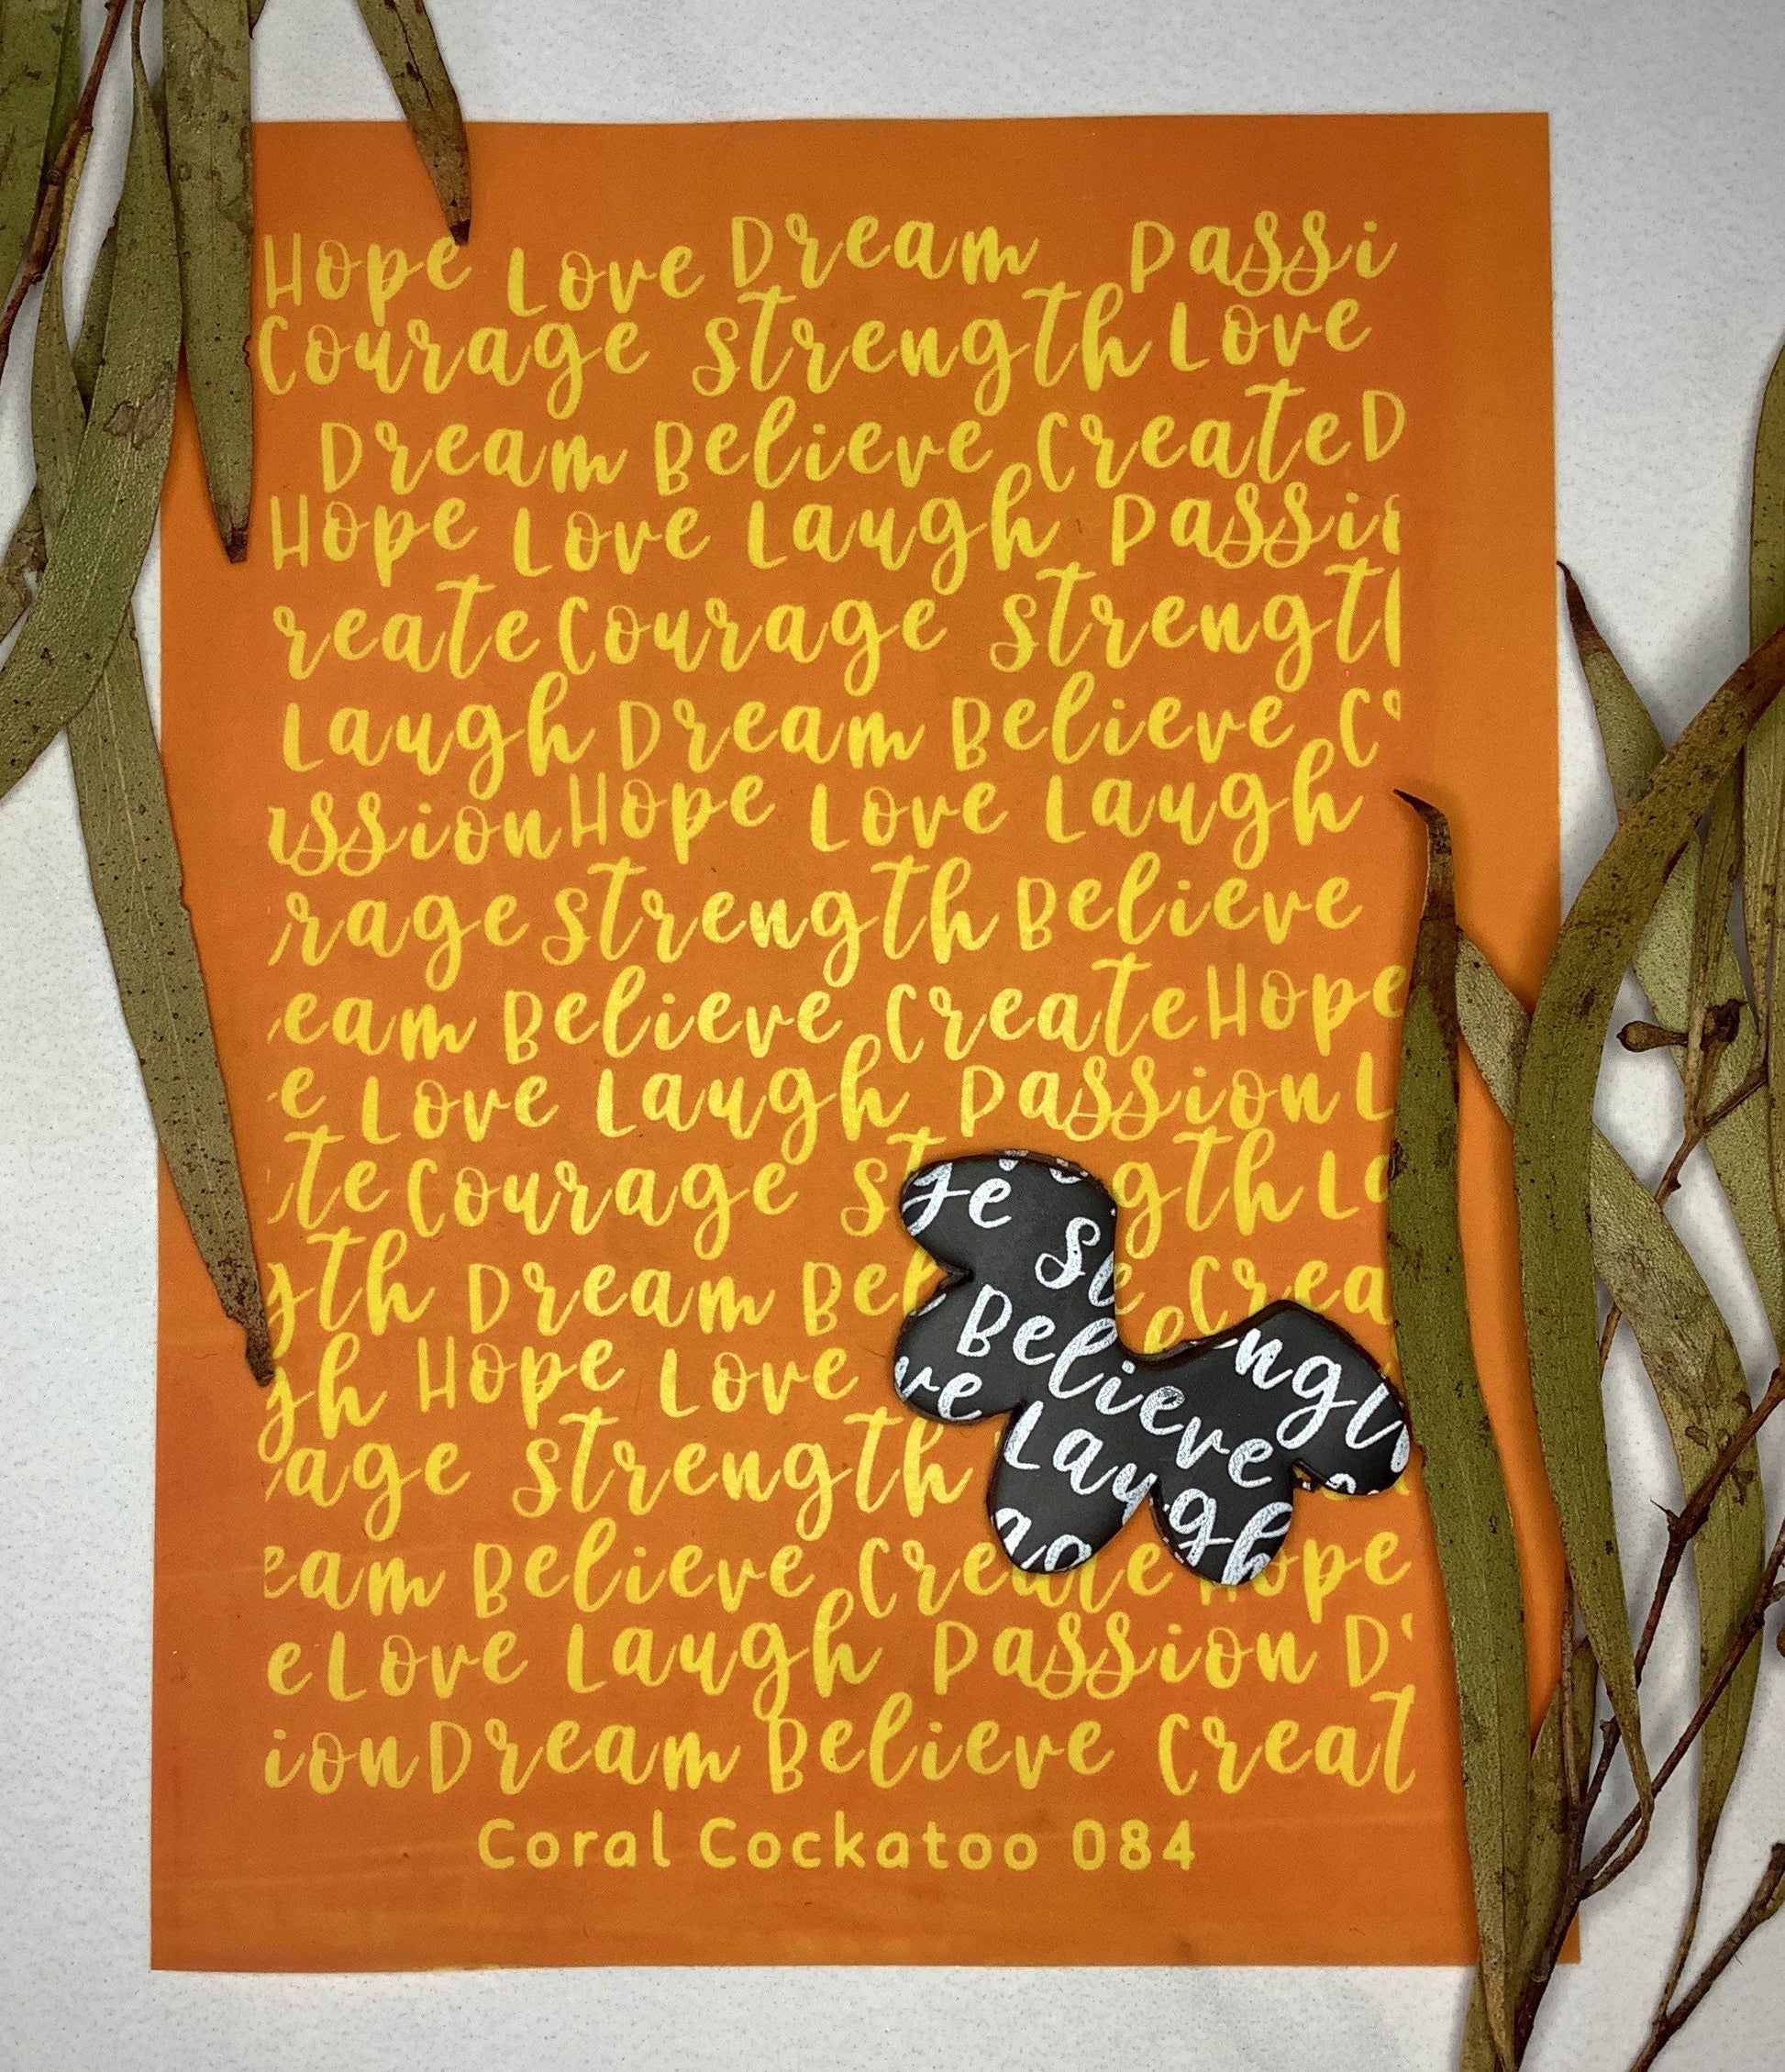 Hope Love Dream Passi
Courage Strength Love
Dream Believe Create D
Hope Love Laugh Passio
reate Courage Strengt
Laugh Dream Believe C
ssion Hope Love Laugh
rage Strength Believe
eam Believe Create Hope
e Love Laugh Passion L
te Courage St gth La
gth Dream Bel e Crea
gh Hope Love
age Strength
eam Believe Create Hope
e Love Laugh Passion D
ion Dream Believe Creat
Coral Cockatoo 084
ge St
Believe ngt
ve Laugh
ag